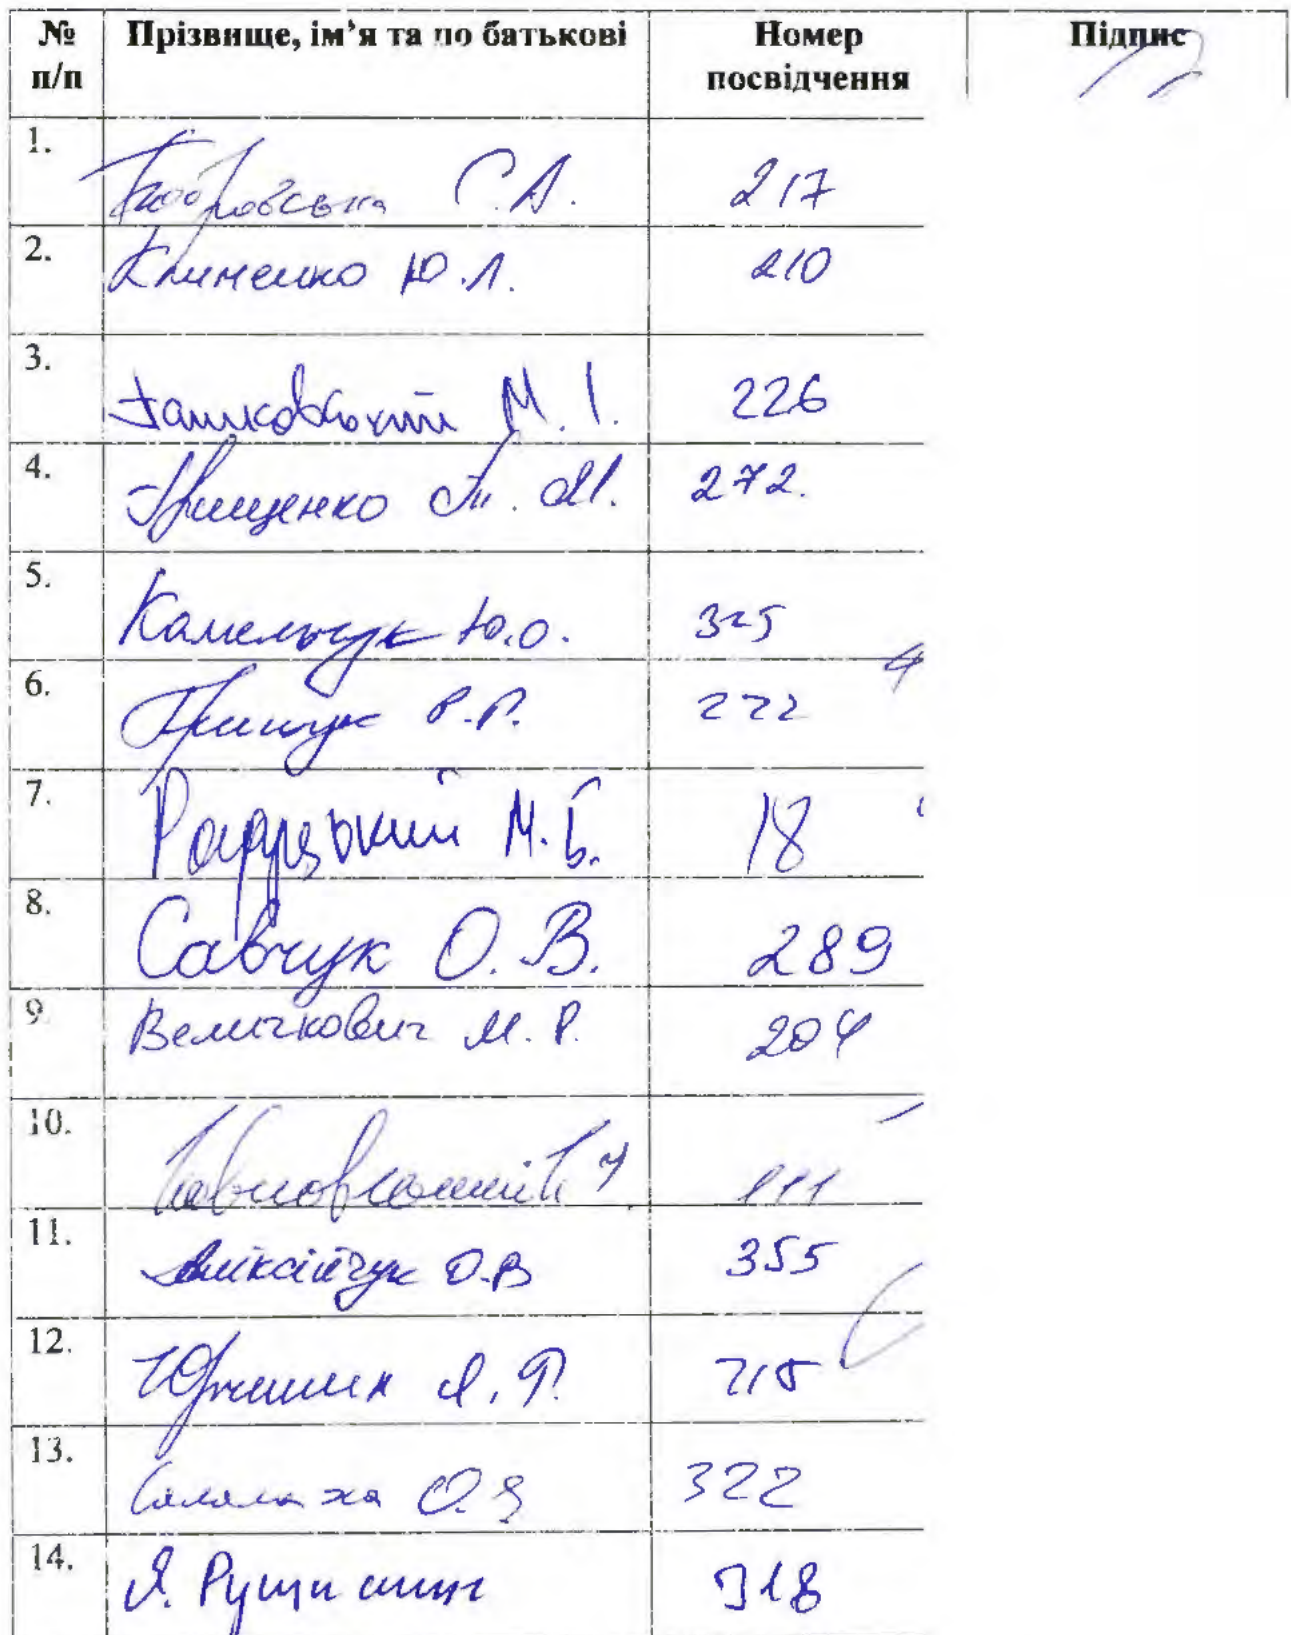 № п/п Прізвище, ім’я та по батькові Номер посвідчення Підпис
1. Бобровська С.А. 217
2. Клименко Ю.Л. 210
3. М.І. 226
4. Грищенко Т.М. 272.
5. Камельчук Ю.О. 325
6. Грищук Р.П. 222
7. Радуцький М.Б. 18
8. Савчук О.В. 289
9. Величкович М.Р. 204
10. 111
11. Аліксійчук О.В 355
12. Юрчишин Я.Р. 315
13. Саламаха О.І 322
14. Я. Рущишин 318